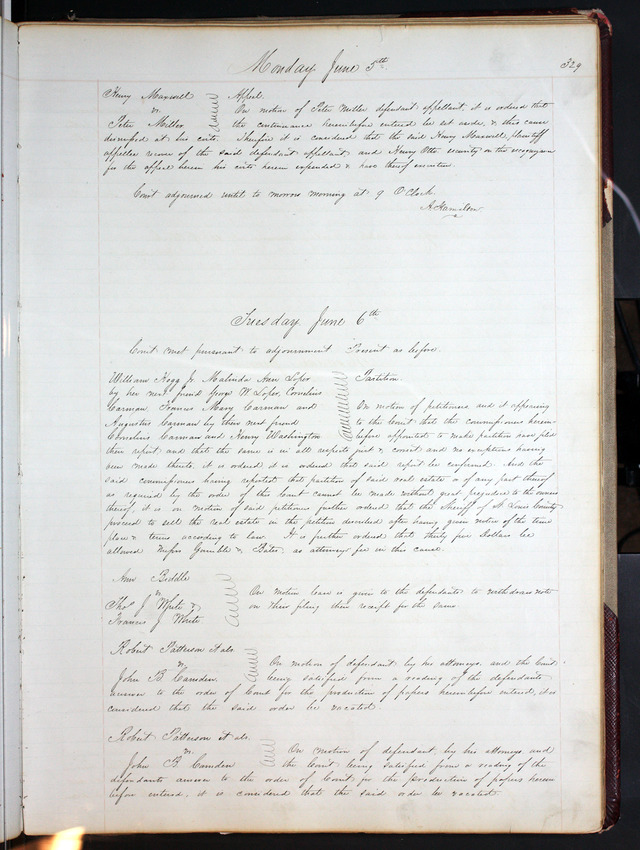 Monday June 5th 329
Henry Maxwell Appeal.
vs. On motion of Peter Miller defendant appellant it is ordered that
Peter Miller the continuance heretofore entered be set aside, & this cause
dismissed at his costs. Therefore it is considered that the said Henry Maxwell plaintiff
appellee recover of the said defendant appellant and Henry Otto security on the recognizance
for the appeal herein his costs herein expended & have thereof execution.
Court adjourned until to morrow morning at 9 O'Clock
A Hamilton
Tuesday June 6th
Court met pursuant to adjournment Present as before.
William Hogg Jr. Malinda Ann Loper Partition.
by her next friend George W. Loper, Cornelius
Carman Francis Mary Carman and On motion of petitioners and it appearing
Augustus Carman by their next friend to the Court that the Commissioners herein
Cornelius Carman and Henry Washington before appointed to make partition have filed
their report and that the same is in all respects just & correct and no exceptions having
been made thereto, it is ordered it is ordered that said report be confirmed. And the
said commissioners having reported that partition of said real estate or of any part thereof
as required by the order of this Court cannot be made without great prejudice to the owners
thereof, it is on motion of said petitioners further ordered that the Sheriff of St Louis County
proceed to sell the real estate in the petition described after having given notice of the time
place & terms according to law. It is further ordered that thirty five Dollars be
allowed Messrs Gamble & Bates, as attorneys fee in this cause.
Ann Biddle
vs On motion leave is given to the defendants to withdraw note
Thos J White & on their filing their receipt for the same.
Francis J White
Robert Patterson et als.
vs On motion of defendant by his attorneys, and the Court
John B Camden. being satisfied from a reading of the defendants
answer to the order of Court for the production of papers heretofore entered, it is
considered that the said order be vacated.
Robert Patterson et als.
vs. On motion of defendant by his attorneys and
John B Camden the Court being satisfied from a reading of the
defendants answer to the order of Court for the production of papers herein
before entered, it is considered that the said order be vacated.